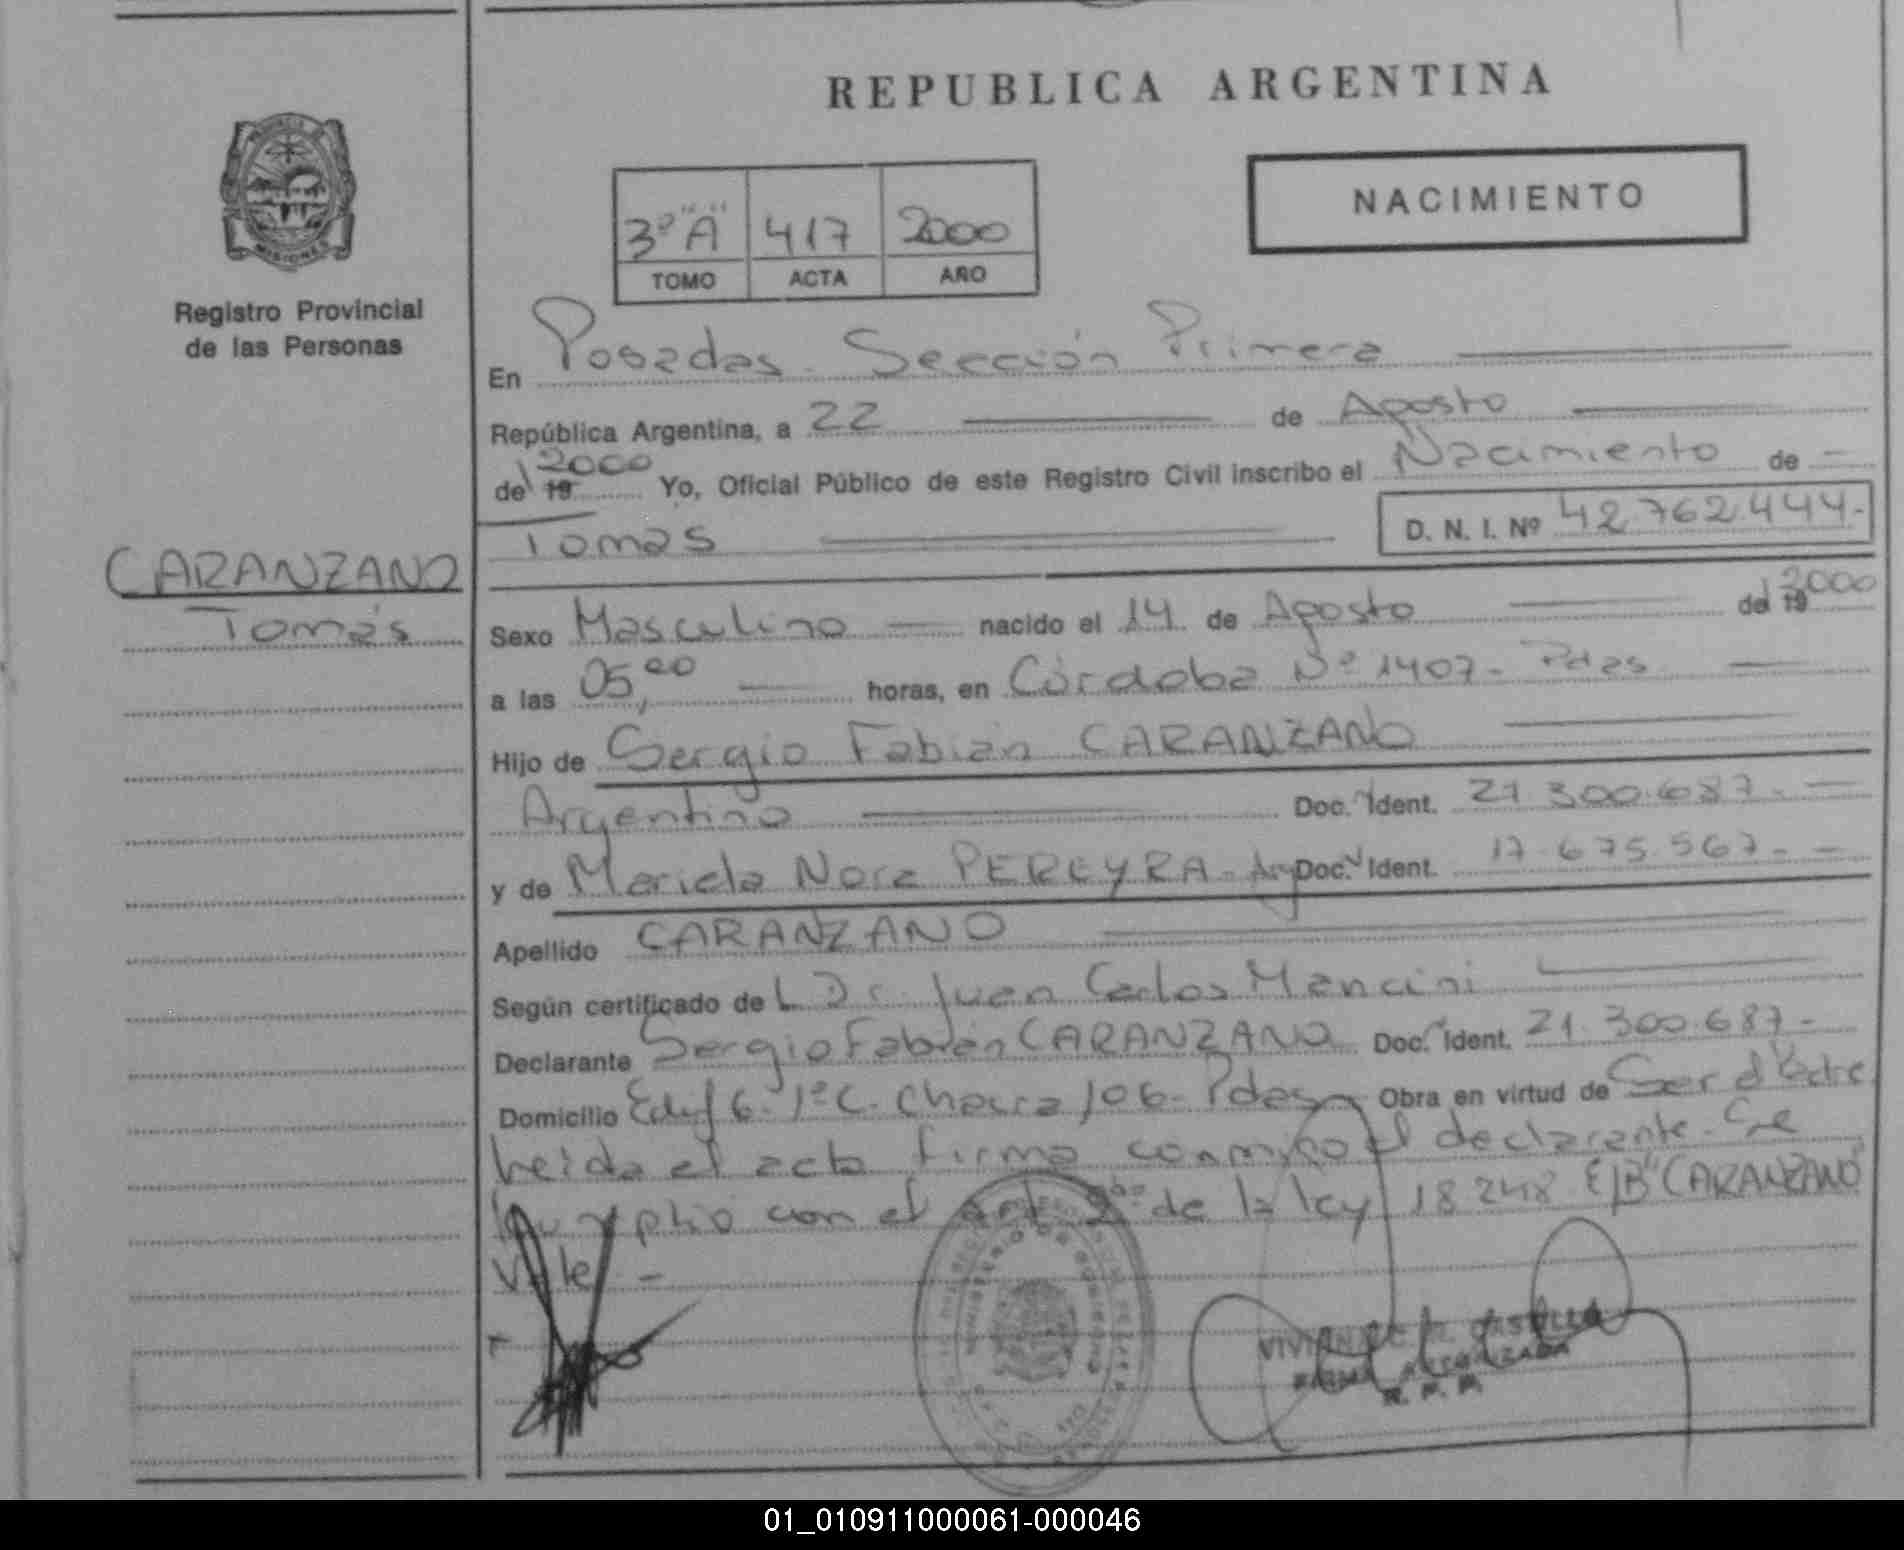 REPUBLICA ARGENTINA
NACIMIENTO
3º "A" 417 2000
TOMO ACTA AÑO
PROVINCIA DE MISIONES
Registro Provincial
de las Personas
En Posadas. Sección Primera
República Argentina, a 22 de Agosto
del 2000 19 Yo, Oficial Público de este Registro Civil inscribo el Nacimiento de
Tomás
D. N. I. Nº 42.762.444.-
CARANZANO
Tomás
Sexo Masculino nacido el 14 de Agosto del 19 2000
a las 05,20 horas, en Córdoba Nº 1407- Pdas
Hijo de Sergio Fabián CARANZANO
Argentino Doc. Ident. 21.300.687.-
y de Mariela Nora PEREYRA- Arg Doc. Ident. 17.675.567.-
Apellido CARANZANO
Según certificado del Dr. Juan Carlos Mancini
Declarante Sergio Fabián CARANZANO Doc. Ident. 21.300.687-
Domicilio Edif 6- 1º C- Chacra 106- Pdas Obra en virtud de Ser el Padre
Leída el acta firma conmigo el declarante. Se
cumplió con el art 2º de la ley 18248 E/B "CARANZANO"
Vale -
MINISTERIO DE GOBIERNO
FIRMA AUTORIZADA
R. P. P.
01_010911000061-000046